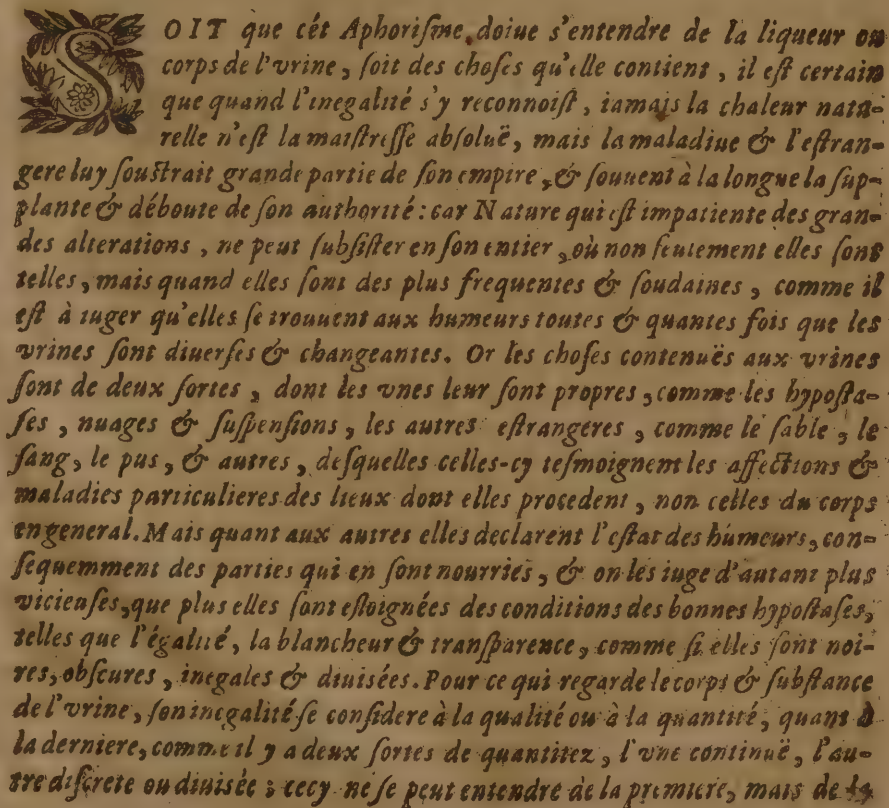 SOIT que cét Aphoriſme doiue s'entendre de la liqueur ou
corps de l'vrine, ſoit des choſes qu'elle contient, il eſt certain
que quand l'inegalité s'y reconnoiſt, iamais la chaleur natu-
relle n'eſt la maiſtreſſe abſoluë, mais la maladiue & l'eſtran-
gere luy ſouſtrait grande partie de ſon empire, & ſouuent à la longue la ſup-
plante & déboute de ſon authorité: car Nature qui eſt impatiente des gran-
des alterations, ne peut ſubſiſter en ſon entier, où non ſeulement elles ſont
telles, mais quand elles ſont des plus frequentes & ſoudaines, comme il
eſt à iuger qu'elles ſe trouuent aux humeurs toutes & quantes fois que les
vrines ſont diuerſes & changeantes. Or les choſes contenuës aux vrines
ſont de deux ſortes, dont les vnes leur ſont propres, comme les hypoſta-
ſes, nuages & ſuſpenſions, les autres eſtrangeres, comme le ſable, le
ſang, le pus, & autres, deſquelles celles-cy teſmoignent les affections &
maladies particulieres des lieux dont elles procedent, non celles du corps
en general. Mais quant aux autres elles declarent l'eſtat des humeurs, con-
ſequemment des parties qui en ſont nourries, & on les iuge d'autant plus
vicieuſes, que plus elles ſont eſloignées des conditions des bonnes hypoſtaſes,
telles que l'égalité, la blancheur & tranſparence, comme ſi elles ſont noi-
res, obſcures, inegales & diuisées. Pour ce qui regarde le corps & ſubſtance
de l'vrine, ſon inegalité ſe conſidere à la qualité ou à la quantité, quant à
la derniere, comme il y a deux ſortes de quantitez, l'vne continuë, l'au-
tre diſcrete ou diuisée; cecy ne ſe peut entendre de la premiere, mais de la